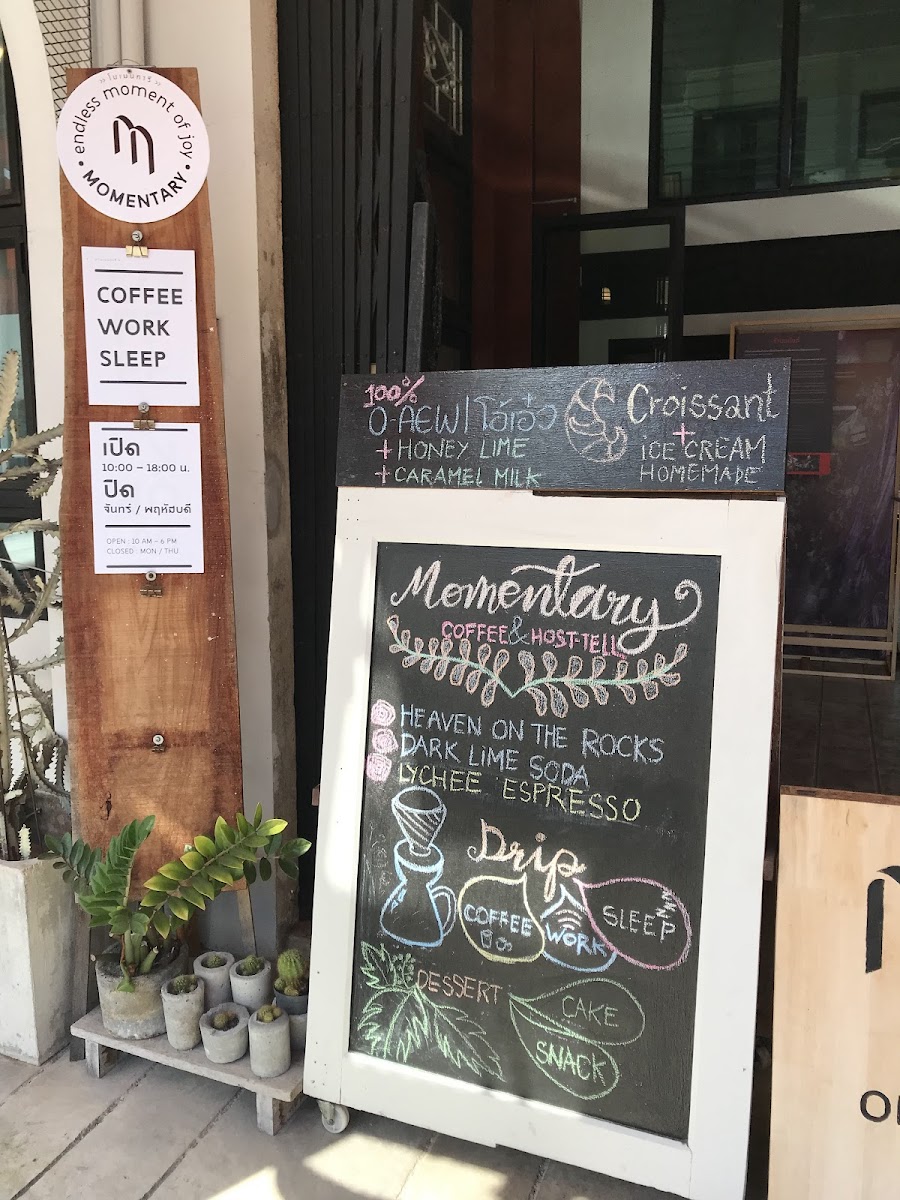 ›› โมเมนทารี ‹‹
• endless moment of joy •
MOMENTARY
COFFEE
WORK
SLEEP
เปิด
10:00 – 18:00 น.
ปิด
จันทร์ / พฤหัสบดี
OPEN : 10 AM – 6 PM
CLOSED : MON / THU
100%
O-AEW | โอ้เอ๋ว
+ HONEY LIME
+ CARAMEL MILK
Croissant
+
ICE CREAM
HOMEMADE
Momentary
COFFEE & HOST-TELL
HEAVEN ON THE ROCKS
DARK LIME SODA
LYCHEE ESPRESSO
Drip
COFFEE
WORK
SLEEP
ZZZ
DESSERT
CAKE
SNACK